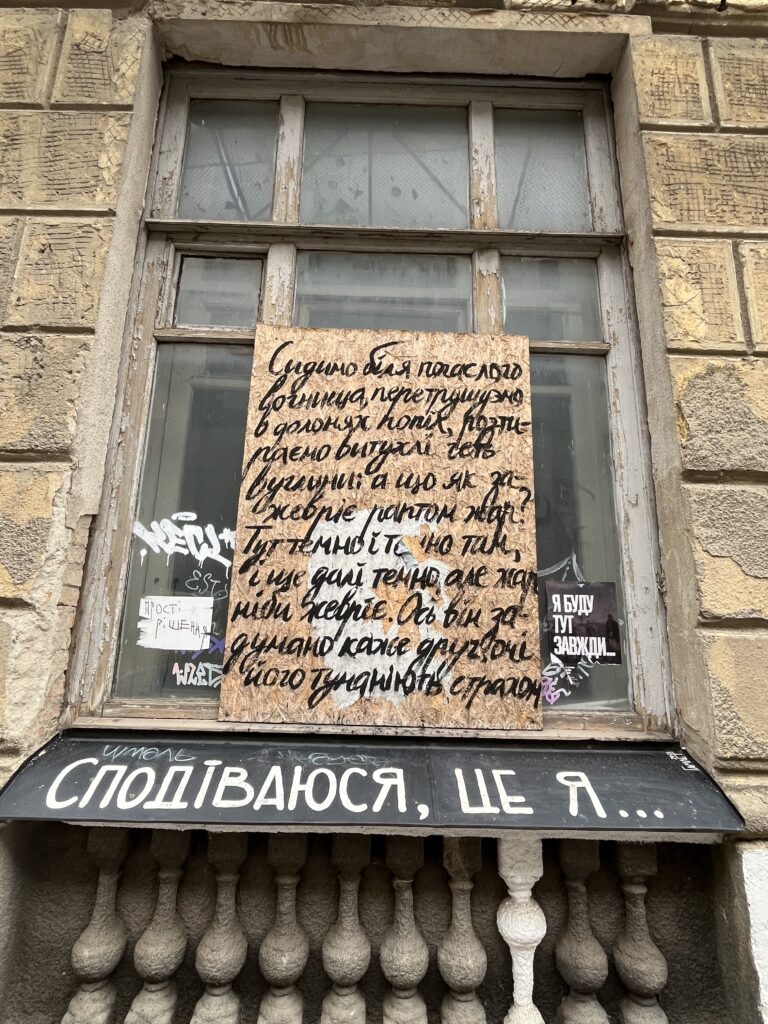 Сидимо біля погаслого
вогнища, перетрушуємо
в долонях попіл, розти-
раємо витухлі геть
вуглини: а що як за-
жевріє раптом жар?
Тут темно і те но там,
і ще далі темно, але жар
ніби жевріє. Ось він за-
думано каже друг, очі
його туманіють страхом
ПРОСТІ
РІШЕННЯ
Я БУДУ
ТУТ
ЗАВЖДИ...
СПОДІВАЮСЯ, ЦЕ Я...